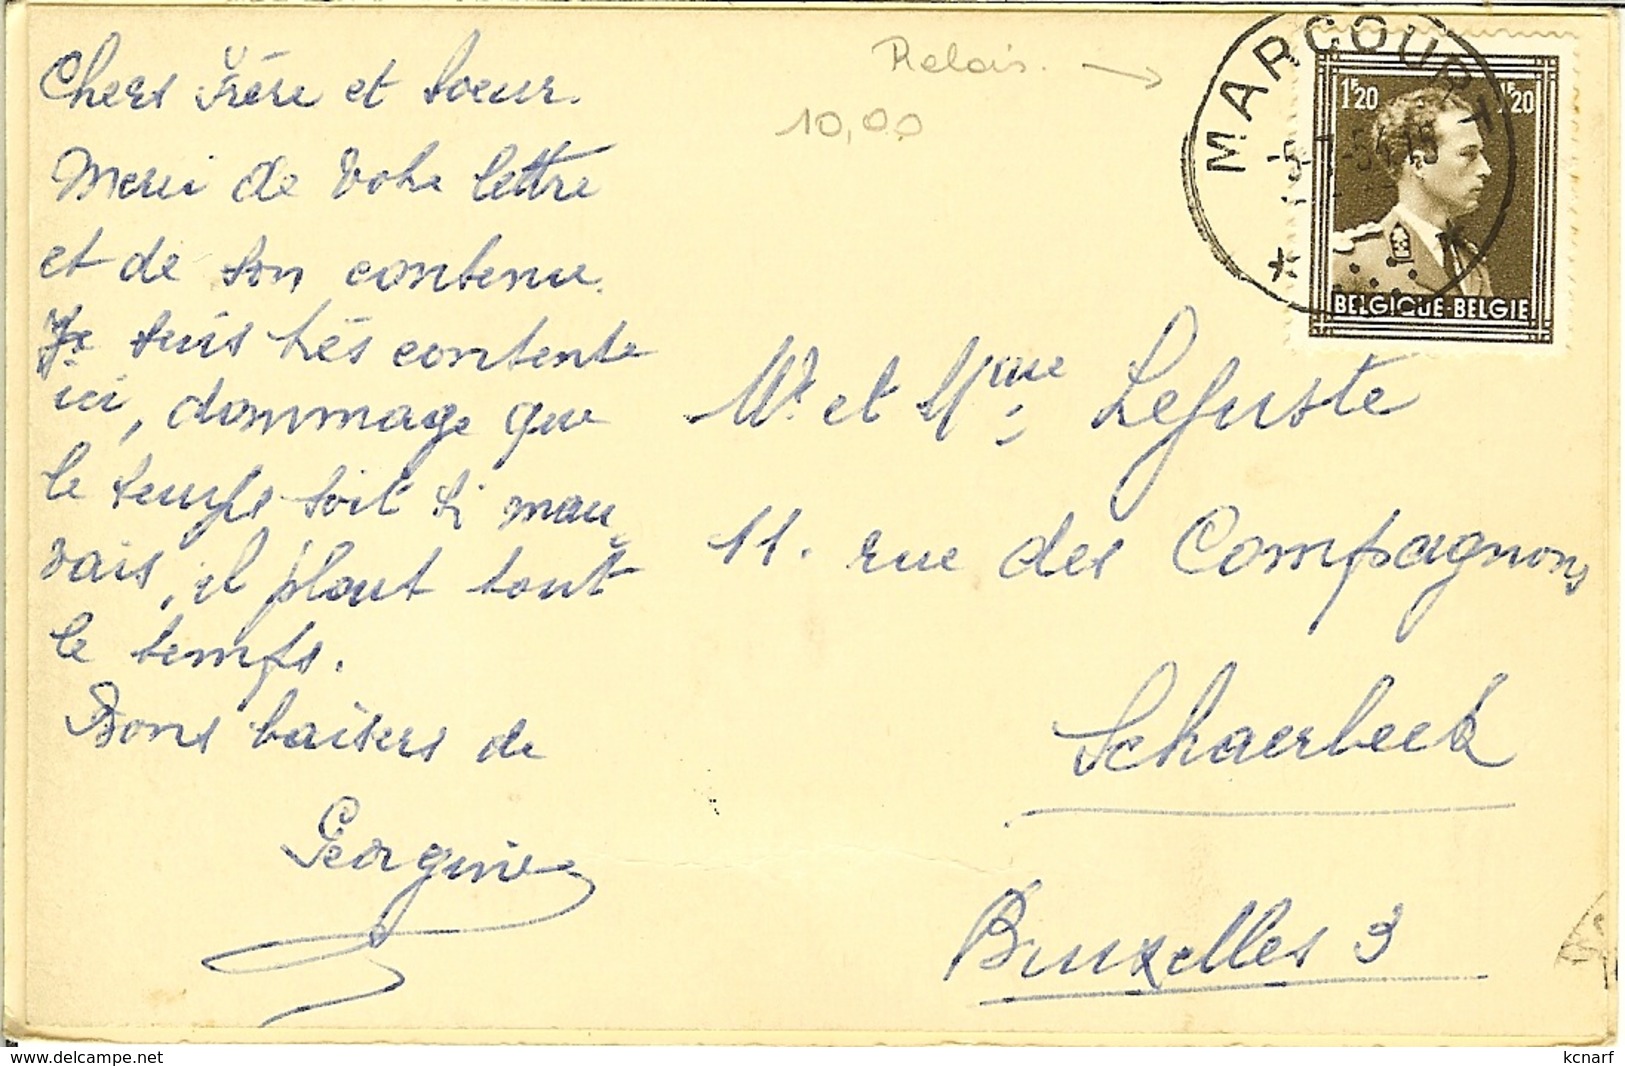 Chers Frère et Soeur.
Merci de Votre lettre
et de son contenu.
Je suis très contente
ici, dommage que
le temps soit si mau
vais, il pleut tout
le temps.
Bons baisers de
Georgine
Relais.
10,00
MARCOURT
1F20
1F20
BELGIQUE-BELGIE
Mr. et Mme Lejuste
11. rue des Compagnons
Schaerbeek
Bruxelles 3
www.delcampe.net
kcnarf